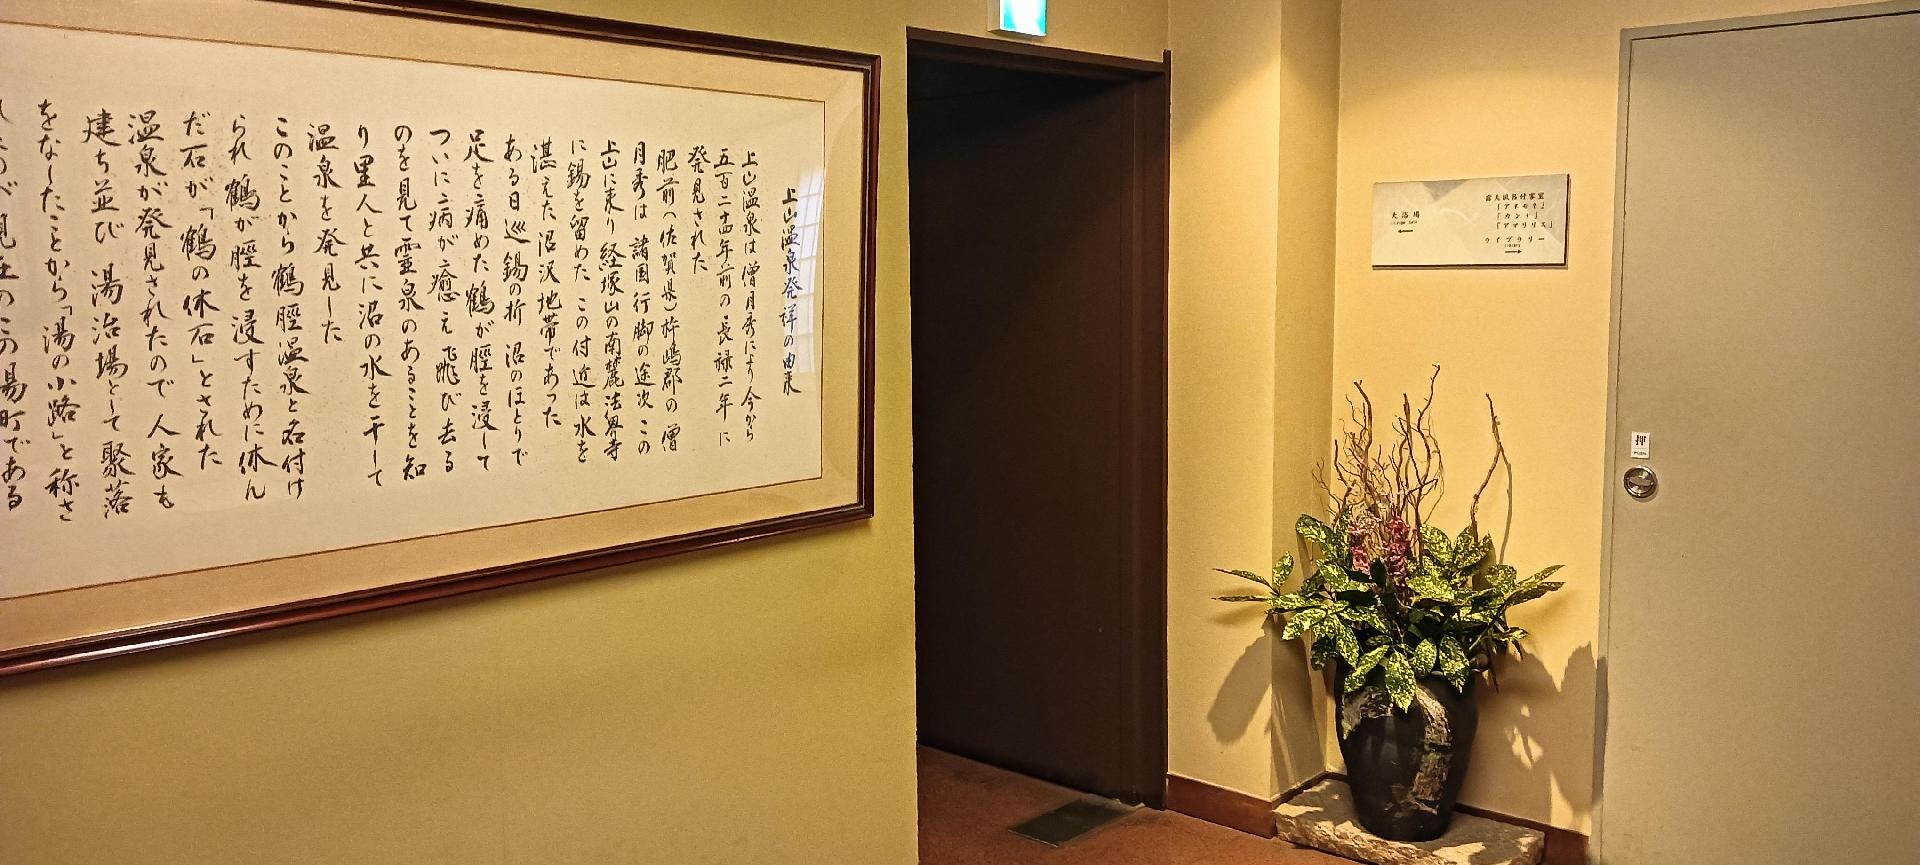 上山温泉発祥の由来
上山温泉は僧月秀により今から
五百二十四年前の長禄二年に
発見された
肥前(佐賀県)杵嶋郡の僧
月秀は諸国行脚の途次この
上山に来り経塚山の南麓法界寺
に錫を留めたこの付近は水を
湛えた沼沢地帯であった
ある日巡錫の折沼のほとりで
足を痛めた鶴が脛を浸して
ついに病が癒えて飛び去る
のを見て霊泉のあることを知
り里人と共に沼の水を干して
温泉を発見した
このことから鶴脛温泉と名付け
られ鶴が脛を浸すために休ん
だ石が「鶴の休石」とされた
温泉が発見されたので人家も
建ち並び湯治場として聚落
をなしたことから「湯の小路」と称さ
れたのが現在のこの湯町である
露天風呂付客室
「アネモネ」
「カンナ」
「アマリリス」
大浴場
←
ライブラリー
Library
→
押
PUSH